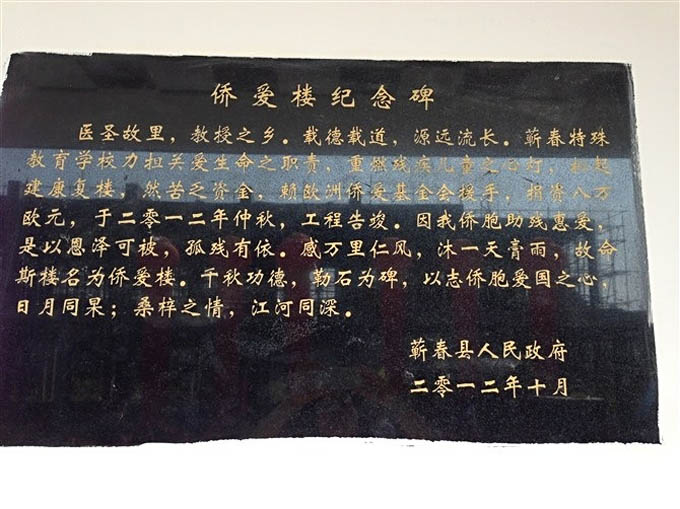 侨爱楼纪念碑
医圣故里，教授之乡。载德载道，源远流长。蕲春特殊
教育学校力担关爱生命之职责，重燃残疾儿童之心灯，拟起
建康复楼，然苦之资金，赖欧洲侨爱基金会援手，捐资八万
欧元，于二零一二年仲秋，工程告竣。因我侨胞助残惠爱，
是以恩泽可被，孤残有依。感万里仁风，沐一天膏雨，故命
斯楼名为侨爱楼。千秋功德，勒石为碑，以志侨胞爱国之心，
日月同杲；桑梓之情，江河同深。
蕲春县人民政府
二零一二年十月